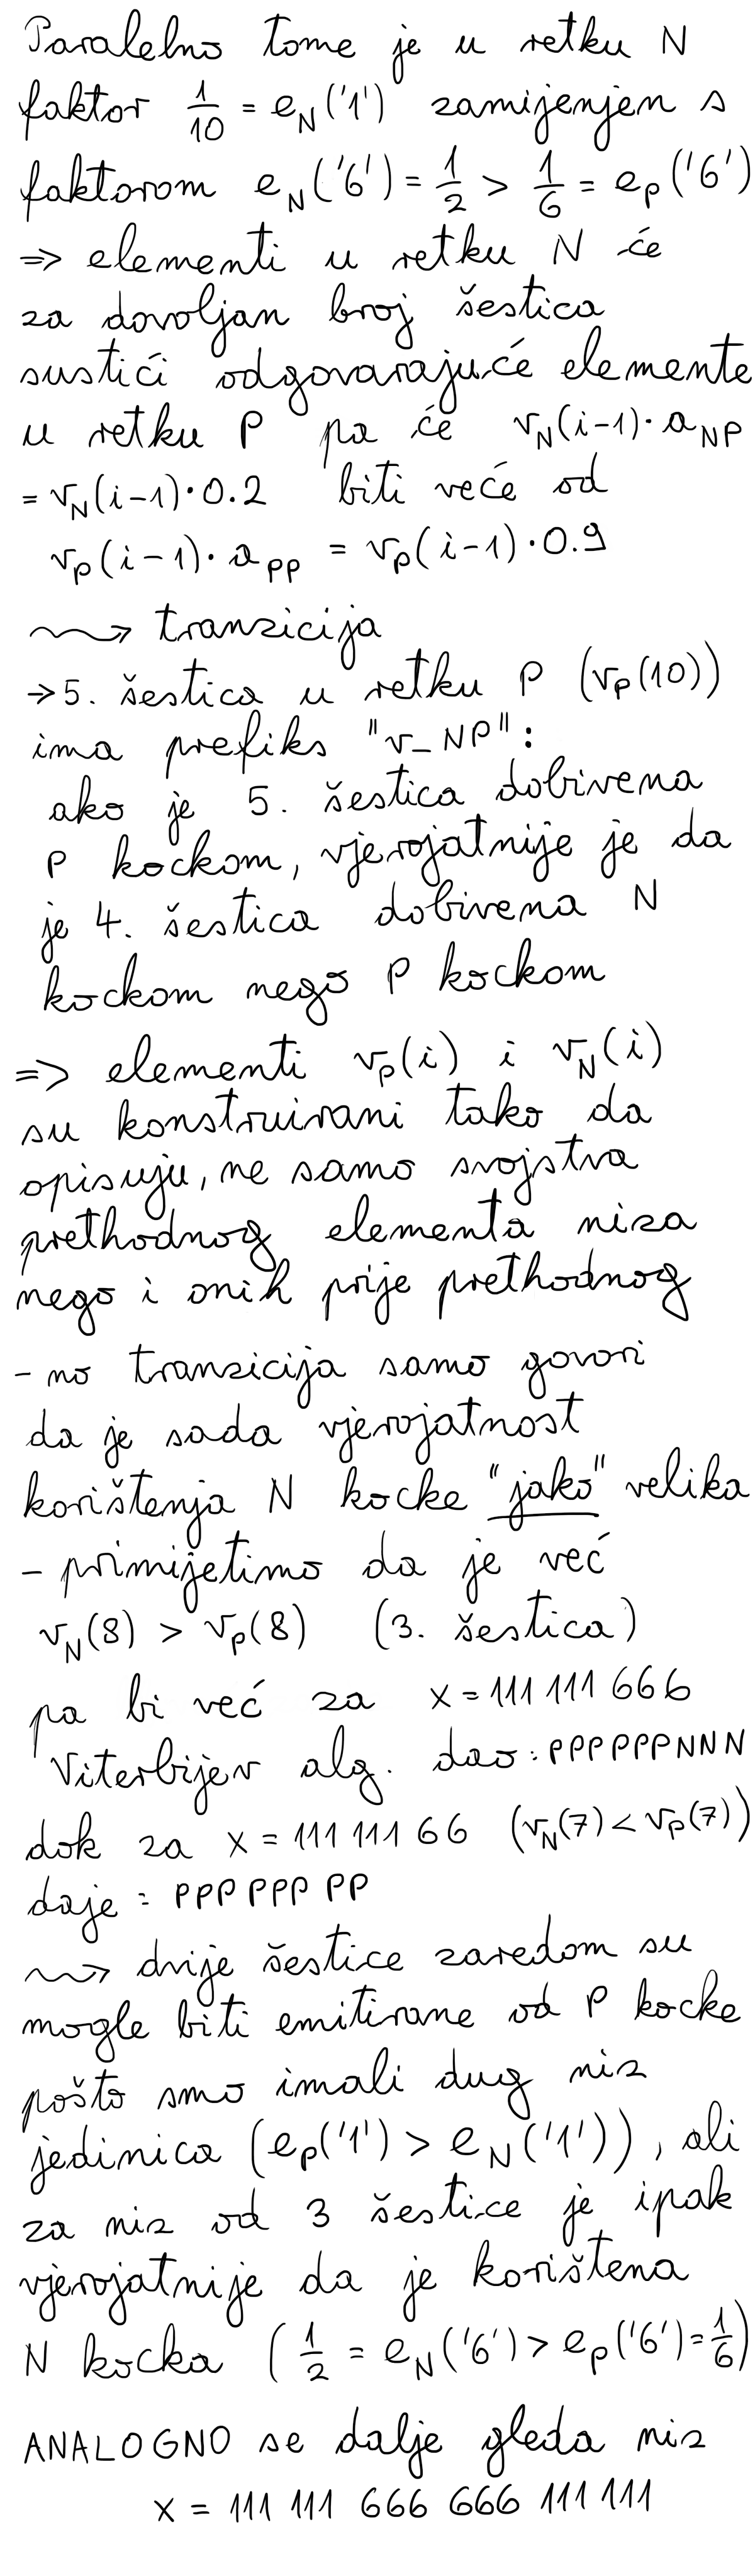 Paralelno tome je u retku N
faktor 1/10 = e_N('1') zamijenjen s
faktorom e_N('6') = 1/2 > 1/6 = e_P('6')
⇒ elementi u retku N će
za dovoljan broj šestica
sustići odgovarajuće elemente
u retku P pa će v_N(i-1)·a_NP
= v_N(i-1)·0.2 biti veće od
v_P(i-1)·a_PP = v_P(i-1)·0.9
⇝ tranzicija
→ 5. šestica u retku P (v_P(10))
ima prefiks "v_NP":
ako je 5. šestica dobivena
P kockom, vjerojatnije je da
je 4. šestica dobivena N
kockom nego P kockom
=> elementi v_P(i) i v_N(i)
su konstruirani tako da
opisuju, ne samo svojstva
prethodnog elementa niza
nego i onih prije prethodnog
- no tranzicija samo govori
da je sada vjerojatnost
korištenja N kocke "jako" velika
- primijetimo da je već
v_N(8) > v_P(8) (3. šestica)
pa bi već za x = 111 111 666
Viterbijev alg. dao: PPP PPP NNN
dok za x = 111 111 66 (v_N(7) < v_P(7))
daje: PPP PPP PP
⇝ dvije šestice zaredom su
mogle biti emitirane od P kocke
pošto smo imali dug niz
jedinica (e_P('1') > e_N('1')), ali
za niz od 3 šestice je ipak
vjerojatnije da je korištena
N kocka (1/2 = e_N('6') > e_P('6') = 1/6)
ANALOGNO se dalje gleda niz
x = 111 111 666 666 111 111